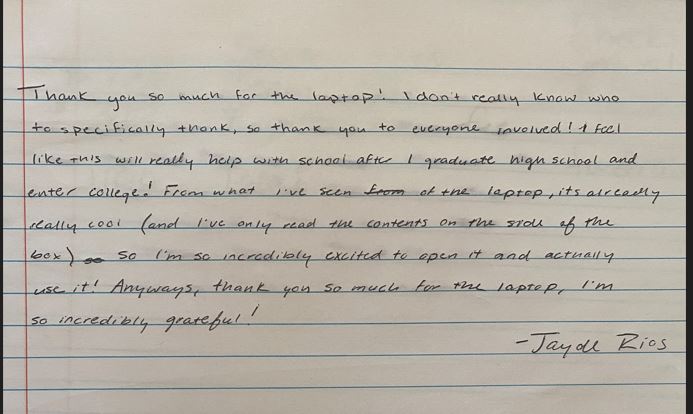 Thank you so much for the laptop! I don't really know who
to specifically thank, so thank you to everyone involved! I feel
like this will really help with school after I graduate high school and
enter college! From what I've seen from of the laptop, its already
really cool (and I've only read the contents on the side of the
box) so so I'm so incredibly excited to open it and actually
use it! Anyways, thank you so much for the laptop, I'm
so incredibly grateful!
-Jayde Rios